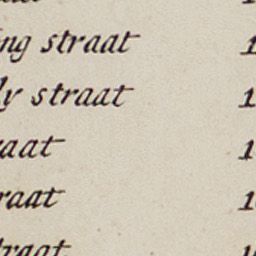 ng straat 1
y straat 1
raat 1
raat 1
traat